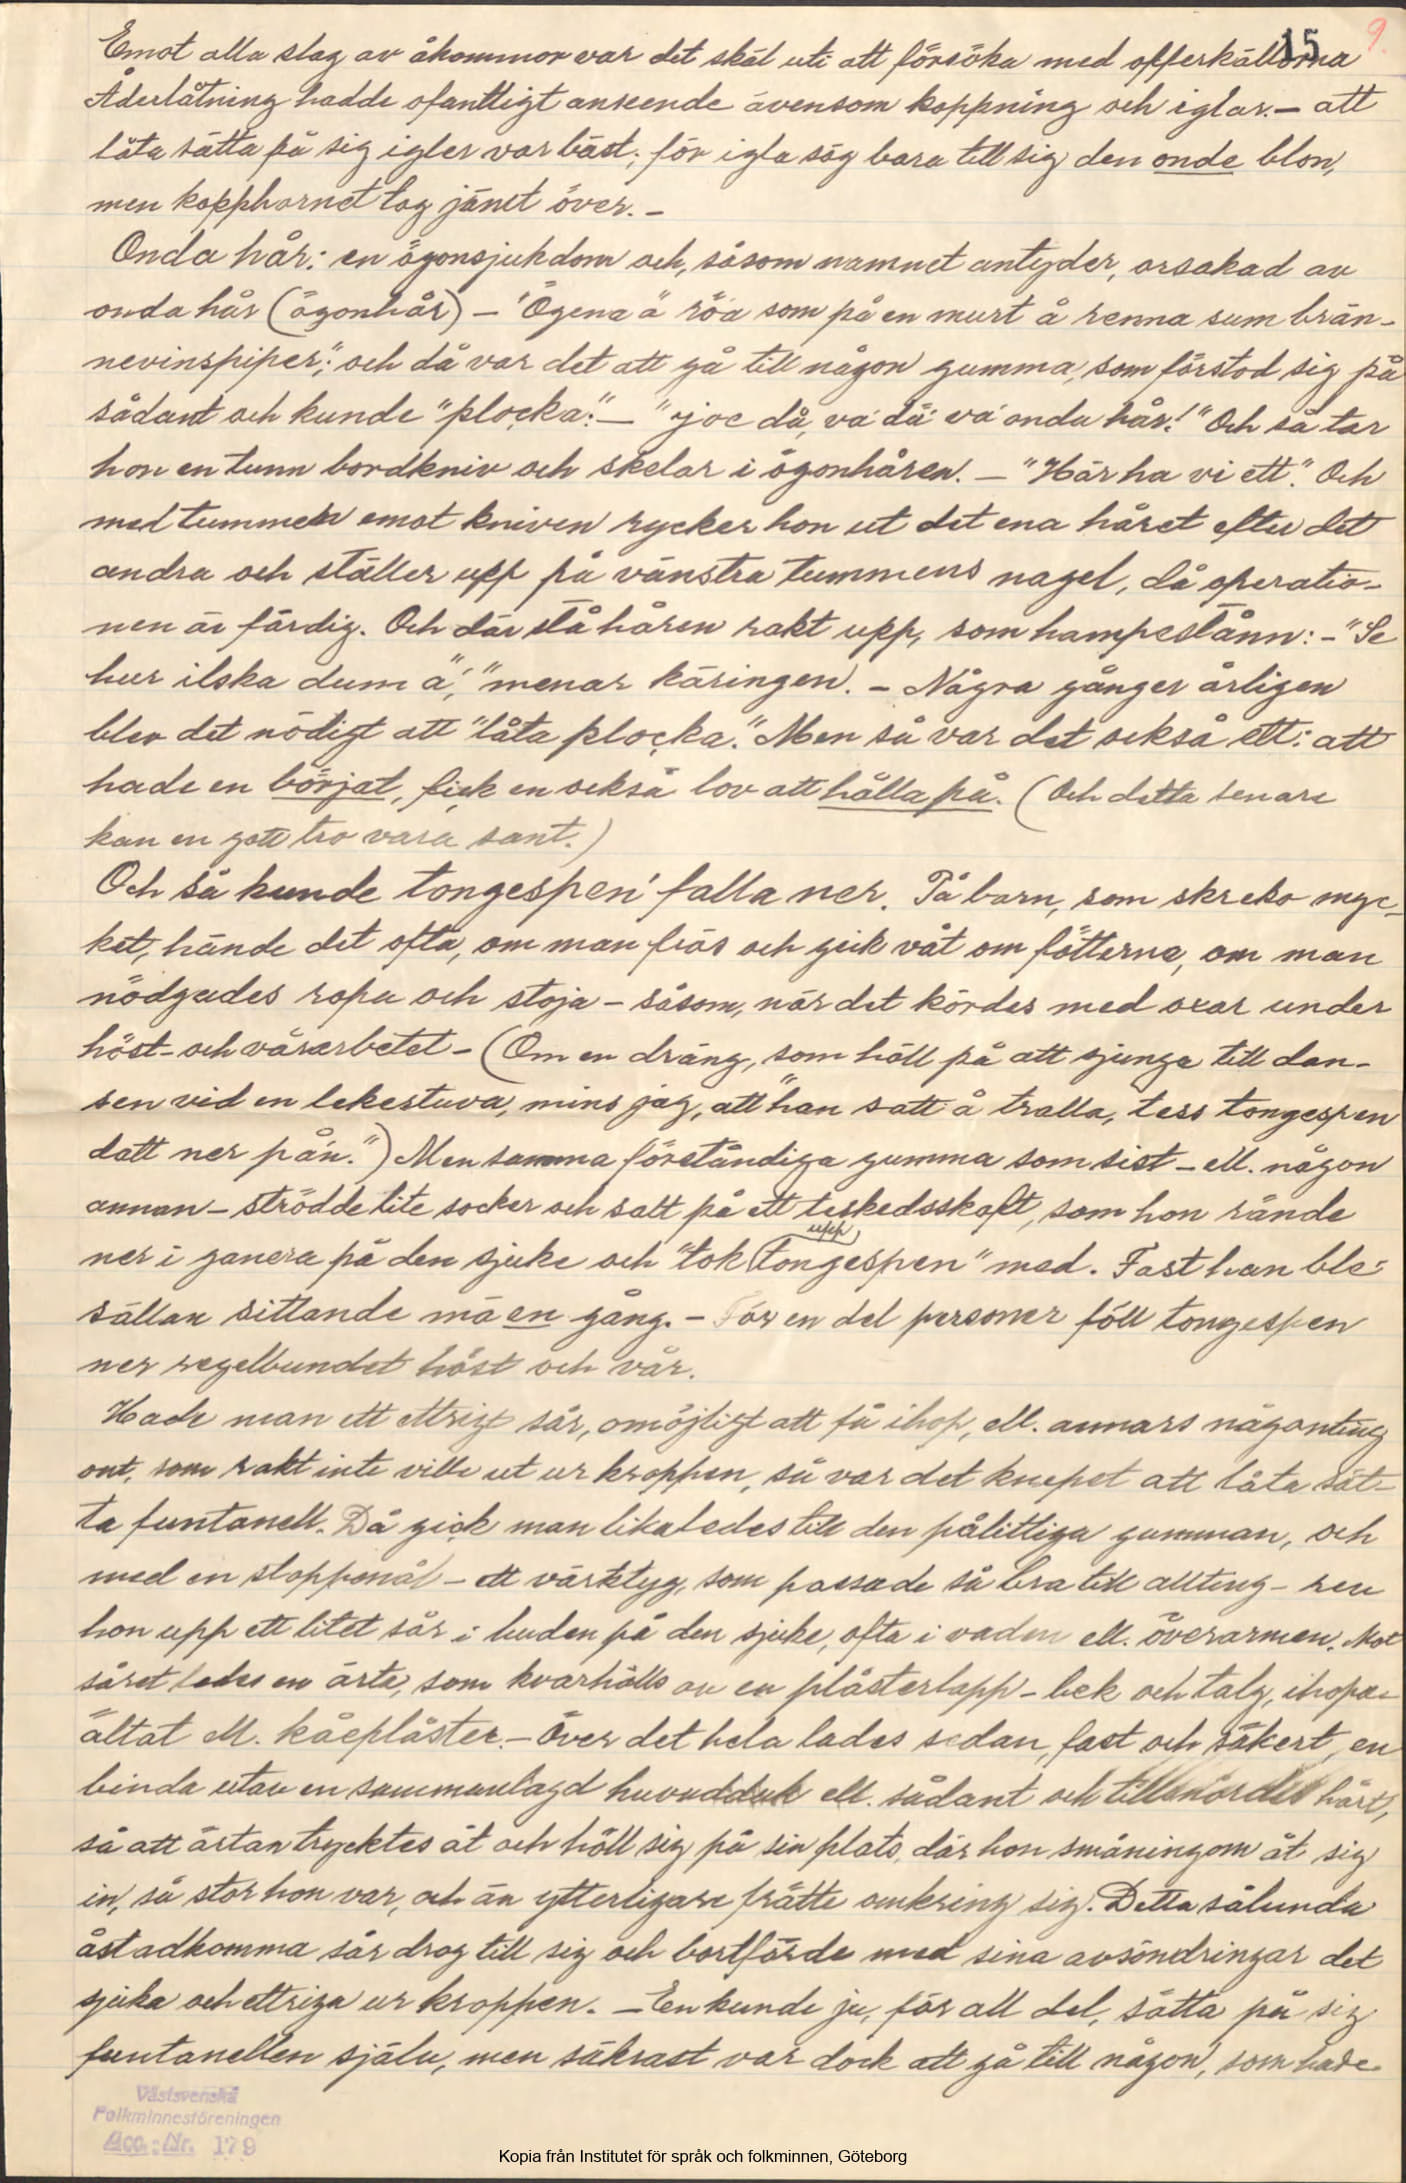 15 9.
Emot alla slag av åkommor var det skäl uti att försöka med offerkällorna
Åderlåtning hadde ofantligt anseende ävensom koppning och iglar. – att
låta sätta på sig igler var bäst; för igla sög bara till sig den onde blon,
men kopphornet tog jämt över. –
Onda hår: en ögonsjukdom och, såsom namnet antyder, orsakad av
onda hår (ögonhår) – "Ögena ä' röa som på en murt å renna sum brän-
nevinspiper;" och då var det att gå till någon gumma, som förstod sig på
sådant och kunde "plocka." – "joe då, va' dä' va' onda hår!" Och så tar
hon en tunn bordkniv och skelar i ögonhåren. – "Här ha vi ett." Och
med tummen emot kniven rycker hon ut det ena håret efter det
andra och ställer upp på vänstra tummens nagel, då operatio-
nen är färdig. Och där stå håren rakt upp, som hampestånn: – "Se
hur ilska dum ä'," menar käringen. – Några gånger årligen
blev det nödigt att "låta plocka." Men så var det också ett: att
hade en börjat, fick en också lov att hålla på. (Och detta senare
kan en gott tro vara sant.)
Och så kunde tongespen' falla ner. På barn, som skreko myc-
ket, hände det ofta, om man frös och gick våt om fötterna, om man
nödgades ropa och stoja – såsom, när det kördes med oxar under
höst- och vårarbetet – (Om en dräng, som höll på att sjunga till dan-
sen vid en lekestuva, mins jag, att "han satt å tralla, tess tongespen
datt ner på'n.") Men samma förståndiga gumma som sist – ell. någon
annan – strödde lite socker och salt på ett teskedsskaft, som hon rände
upp
ner i ganera på den sjuke och "tok tongespen" med. Fast han ble'
sällan sittande mä en gång. – För en del personer föll tongespen
ner regelbundet höst och vår.
Hade man ett ettrigt sår, omöjligt att få ihop, ell. annars någonting
ont, som rakt inte ville ut ur kroppen, så var det knepet att låta sät-
ta funtanell. Då gick man likaledes till den pålitliga gumman, och
med en stoppenål – ett värktyg, som passade så bra till allting – rev
hon upp ett litet sår i huden på den sjuke, ofta i vaden ell. överarmen. Mot
såret lades en ärta, som kvarhölls av en plåsterlapp – beck och talg, ihopa-
ältat ell. kåeplåster. – Över det hela lades sedan, fast och säkert, en
binda utav en sammanlagd huvudduk ell. sådant och tillsnördes hårt,
så att ärtan trycktes åt och höll sig på sin plats, där hon småningom åt sig
in, så stor hon var, och än ytterligare frätte omkring sig. Detta sålunda
åstadkomma sår drog till sig och bortförde med sina avsöndringar det
sjuka och ettriga ur kroppen. – En kunde ju, för all del, sätta på sig
funtanellen själv, men säkrast var dock att gå till någon, som hade
Västsvenska
Folkminnesföreningen
Acc.:Nr. 179
Kopia från Institutet för språk och folkminnen, Göteborg